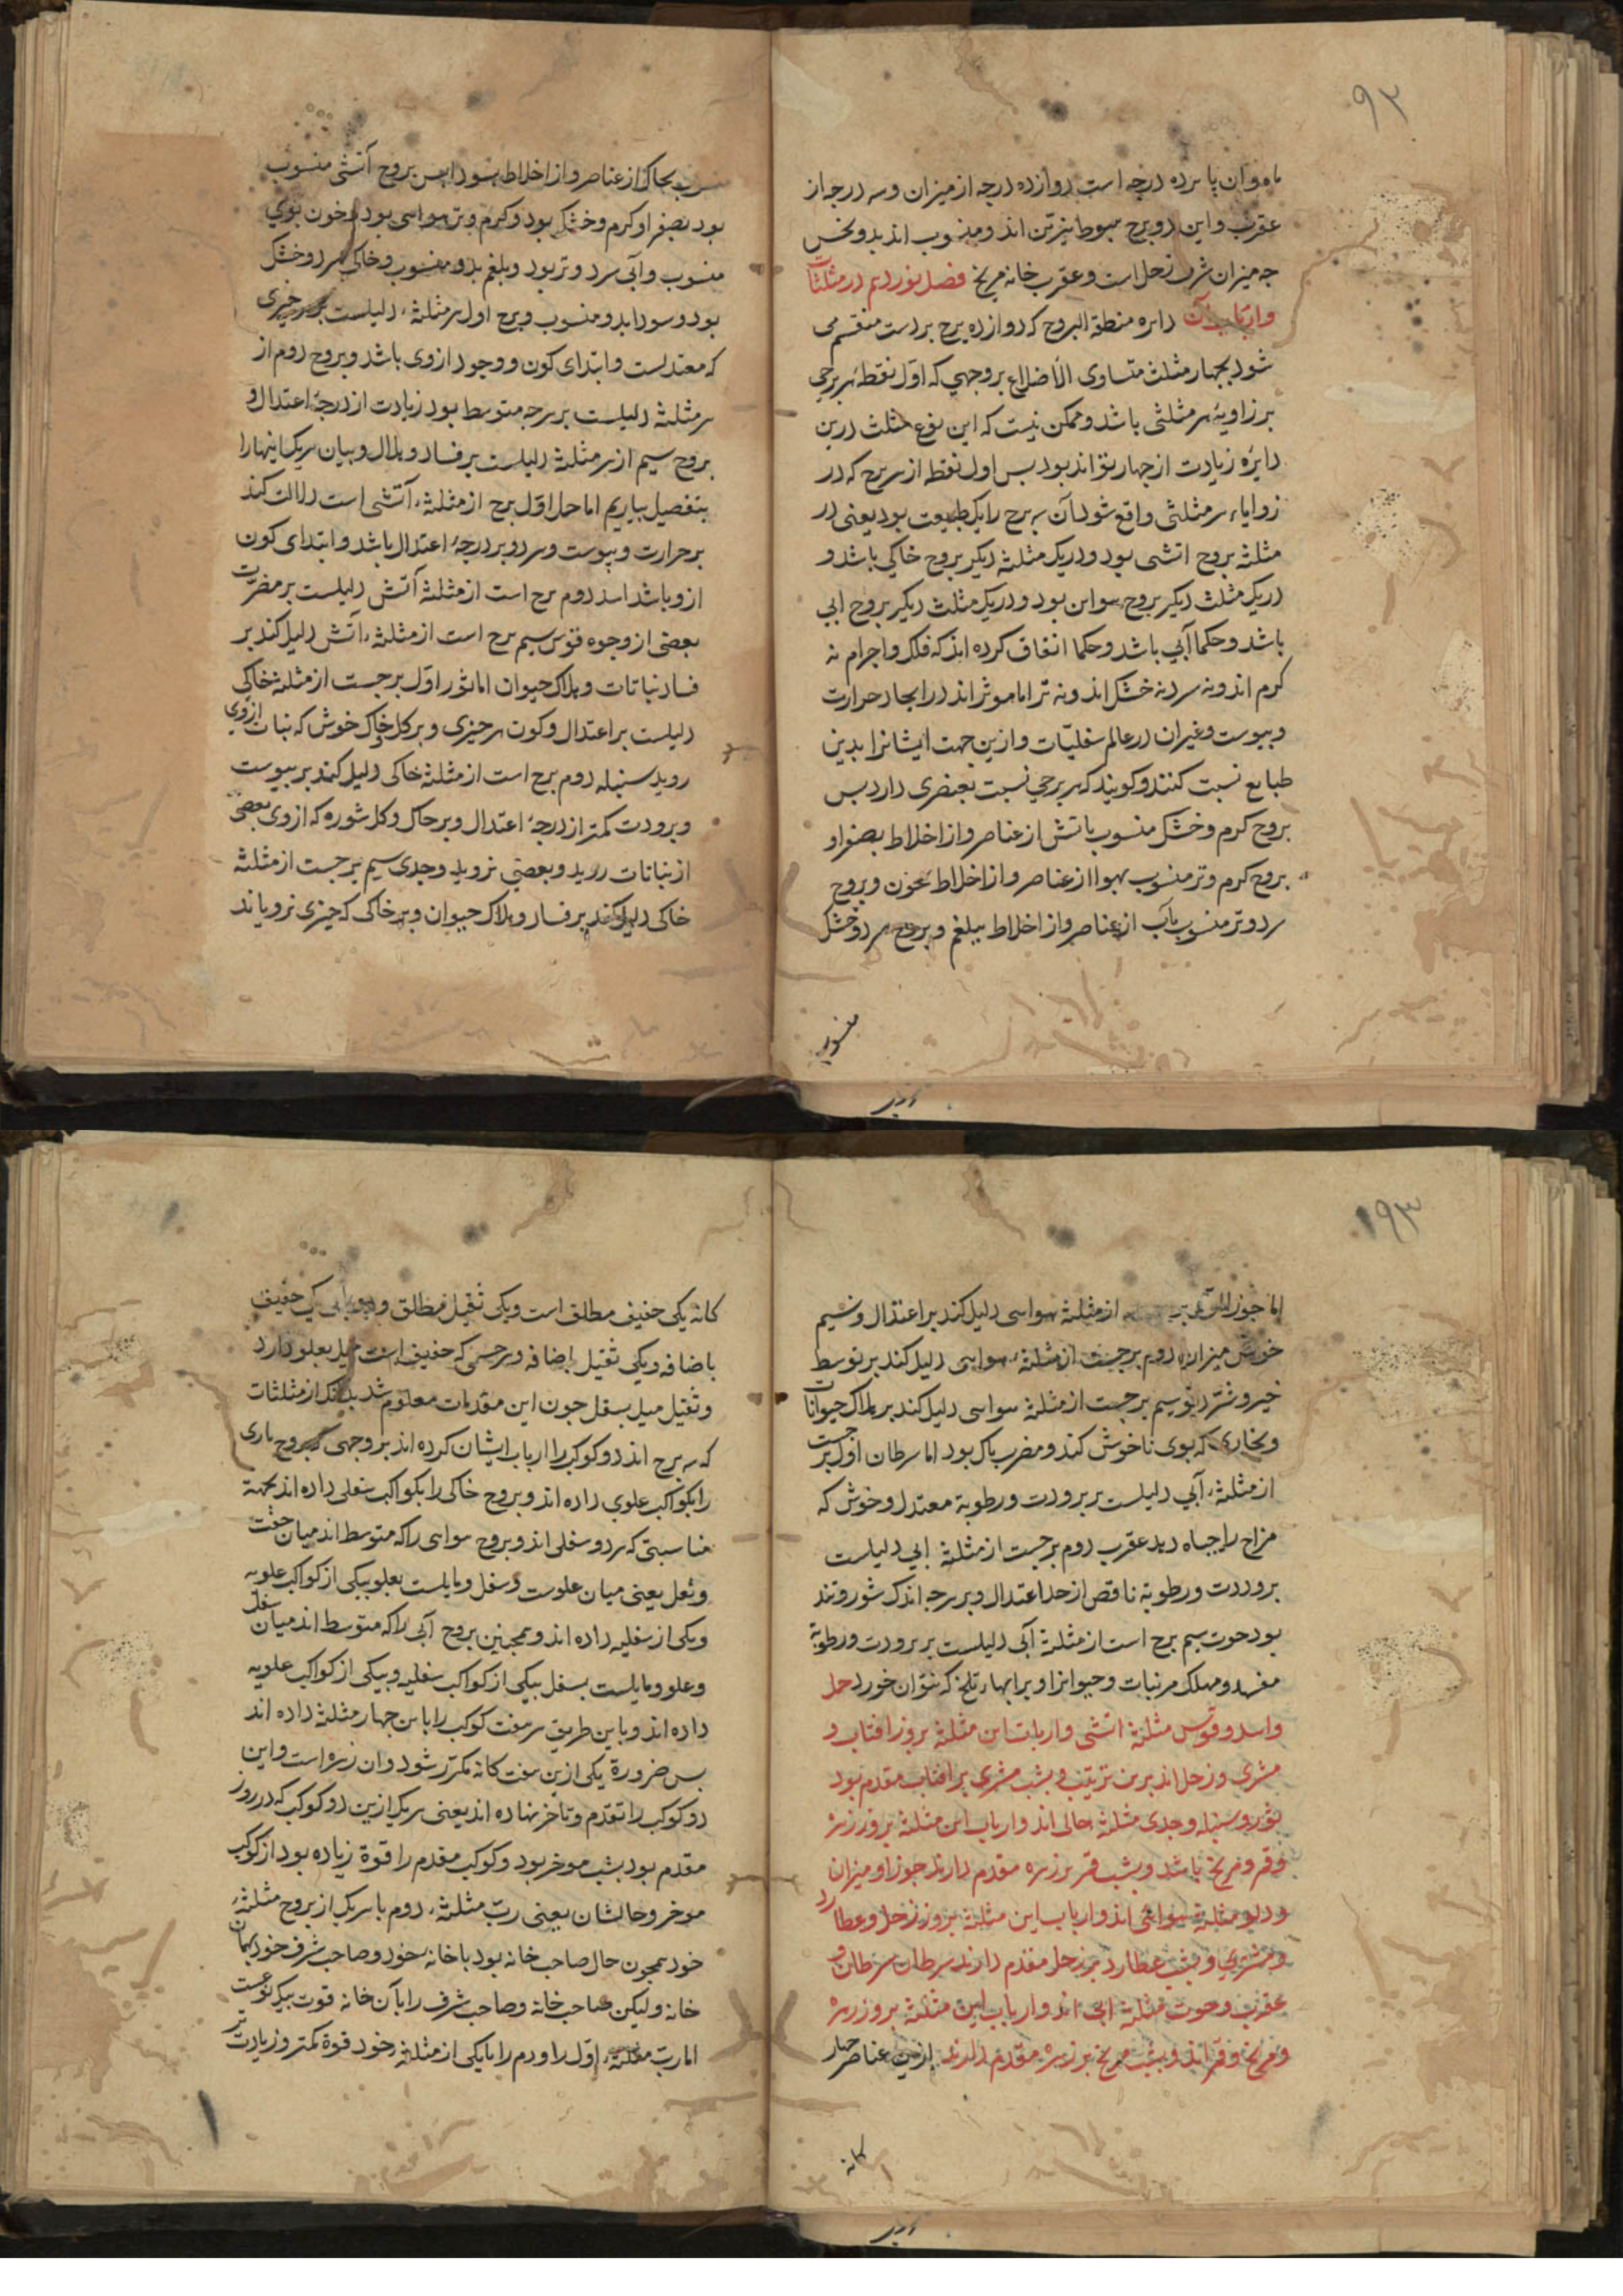 ۹۳
ماه وان پانزده درجه است دوازده درجه از میزان و سه درجه از
عقرب و این دو برج هبوط نیرین اند و منسوب اند بدو نحس
چه میزان شرف زحل است و عقرب خانه مریخ فصل نوزدهم در مثلثات
و ارباب آن دایره منطقة البروج که دوازده برج بر دست منقسم می
شود بچهار مثلث متساوی الأضلاع بر وجهی که اول نقطهٔ هر برجی
بر زاویهٔ هر مثلثی باشد و ممکن نیست که این نوع مثلث درین
دایره زیادت از چهار تواند بود بس اول نقط از هر برج که در
زوایاء هر مثلثی واقع شود آن سه برج را یک طبیعت بود یعنی در
مثلثه بروج اتشی بود و در یک مثلثه دیکر بروج خاکی باشد و
در یک مثلث دیکر بروج هوایی بود و در یک مثلث دیکر بروج ابی
باشد و حکما آبی باشد و حکما اتفاق کرده اند که فلک و اجرام نه
کرم اند و نه سرد نه خشک اند و نه تر اما موثر اند در ایجاد حرارت
و یبوست و غیر ان در عالم سفلیات و ازین جهت ایشانرا بدین
طبایع نسبت کنند و کویند که هر برجی نسبت بعنصری دارد بس
بروج کرم و خشک منسوب باتش از عناصر و از اخلاط بصفرا و
بروج کرم و تر منسوب بهوا از عناصر و از اخلاط بخون و بروج
سرد و تر منسوب بآب از عناصر و از اخلاط ببلغم و بروج سرد و خشک
منسوب
بخاک از عناصر و از اخلاط بسودا بس بروج آتشی منسوب
بود بصفرا و کرم و خشک بود و کرم و تر هوایی بود و خون بوی
منسوب و آبی سرد و تر بود و بلغم بدو منسوب و خاکی سرد و خشک
بود و سودا بدو منسوب و برج اول هر مثلثهٔ دلیلست بر هر چیزی
که معتدلست و ابتدای کون و وجود ازوی باشد و بروج دوم از
هر مثلثه دلیلست بر هرچه متوسط بود زیادت از درجهٔ اعتدال و
بروج سیم از هر مثلثه دلیلست بر فساد و هلاک و بیان هر یک اینها را
بتفصیل بیاریم اما حمل اول برج از مثلثهٔ آتشی است دلالت کند
بر حرارت و یبوست و هر دو بر درجهٔ اعتدال باشد و ابتدای کون
ازو باشد اسد دوم برج است از مثلثه آتش دلیلست بر مضرت
بعضی از وجوه قوس سیم برج است از مثلثهٔ آتش دلیل کند بر
فساد نباتات و هلاک حیوان اما ثور اول برجست از مثلثه خاکی
دلیلست بر اعتدال و کون هر چیزی و بر کل خاک خوش که نبات ازوی
روید سنبله دوم برج است از مثلثه خاکی دلیل کند بر یبوست
و برودت کمتر از درجهٔ اعتدال و بر خاک و کل شوره که ازوی بعضی
از نباتات روید و بعضی نروید و جدی سیم برجست از مثلثه
خاکی دلیل کند بر فساد و هلاک حیوان و بر خاکی که چیزی نرویاند
۱۹۳
اما جوزا از مثلثه هوایی دلیل کند بر اعتدال و نسیم
خوش میزان دوم برجست از مثلثهٔ هوایی دلیل کند بر توسط
خیر و شر دلو سیم برجست از مثلثه هوایی دلیل کند بر هلاک حیوانات
و بخاری که بوی ناخوش کند و مضر باک بود اما سرطان اول برجست
از مثلثهٔ آبی دلیلست بر برودت و رطوبة معتدل و خوش که
مزاج را حیاه دهد عقرب دوم برجست از مثلثه ابی دلیلست
بر وردت و رطوبة ناقص از حد اعتدال و بر هرچه اندک شور و تند
بود حوت سیم برج است از مثلثه آبی دلیلست بر برودت و رطوبة
مفسد و مهلک مر نبات و حیوانرا و بر ابهاء تلخ که نتوان خورد حمل
و اسد و قوس مثلثه اتشی و اربات این مثلثه بروز افتاب و
مشتری و زحل اند برین ترتیب و بشب مشتری بر افتاب مقدم بود
ثور و سنبله و جدی مثلثه خاکی اند و ارباب این مثلثه بروز زهره
و قمر و مریخ باشد و بشب قمر بر زهره مقدم دارند جوزا و میزان
و دلو مثلثة هوائی اند و ارباب این مثلثه بروز زحل و عطارد
و مشتری و بشب عطارد بر زحل مقدم دارند سرطان سرطان و
عقرب و حوت مثلثه ابی اند و ارباب این مثلثه بروز زهره
و مریخ و قمر اند و بشب مریخ بر زهره مقدم دارند ازین عناصر چهار
کانه
کانه یکی خفیف مطلق است و یکی ثقیل مطلق و یکی خفیف
باضافه و یکی ثقیل باضافه و هر جسمی که خفیف است میل بعلو دارد
و ثقیل میل بسفل چون این مقدمات معلوم شد بدانک از مثلثات
که سه برج اند دو کوکب را ارباب ایشان کرده اند بر وجهی که بروج ناری
را بکواکب علوی داده اند و بروج خاکی را بکواکب سفلی داده اند بجهة
مناسبتی که هر دو سفلی اند و بروج هوایی را که متوسط اند میان خفت
و ثقل یعنی میان علوست و سفل و مایلست بعلو بیکی از کواکب علویه
و یکی از سفلیه داده اند و همچنین بروج آبی را که متوسط اند میان سفل
و علو و مایلست بسفل بیکی از کواکب سفلیه و بیکی از کواکب علویه
داده اند و باین طریق هر هفت کوکب را باین چهار مثلثه داده اند
بس ضرورة یکی ازین هفت کانه مکرر شود و ان زهره است و این
دو کوکب را تقدم و تاخر نهاده اند یعنی هر یک ازین دو کوکب که در روز
مقدم بود بشب موخر بود و کوکب مقدم را قوة زیاده بود از کوکب
موخر و حالشان یعنی ربّ مثلثهٔ دوم با هر یک از بروج مثلثهٔ
خود همچون حال صاحب خانه بود با خانهٔ خود و صاحب شرف خود بهمان
خانه و لیکن صاحب خانه و صاحب شرف را بآن خانه قوت بیک نوعست
اما ربّ مثلثهٔ اول را و دوم را با یکی از مثلثهٔ خود قوة کمتر و زیادت تر